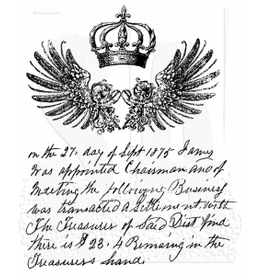 on the 27. day of Sept 1875 James
was appointed Chairman and of
Meeting the following Business
was transacted a Settlement with
The Treasurer of Said Dist find
there is $ 28.4 Remaing in the
Treasurers hand